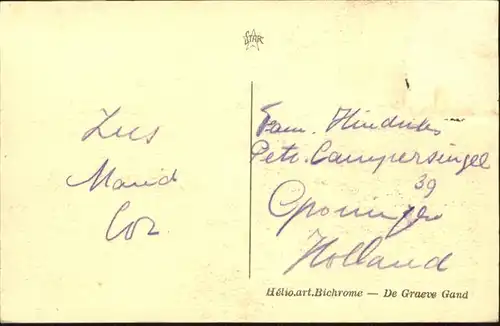 STAR
Zus
Marid
Cor
Fam. Hindriks
Petr. Campersingel
39
Groningen
Holland
Hélio.art.Bichrome — De Graeve Gand